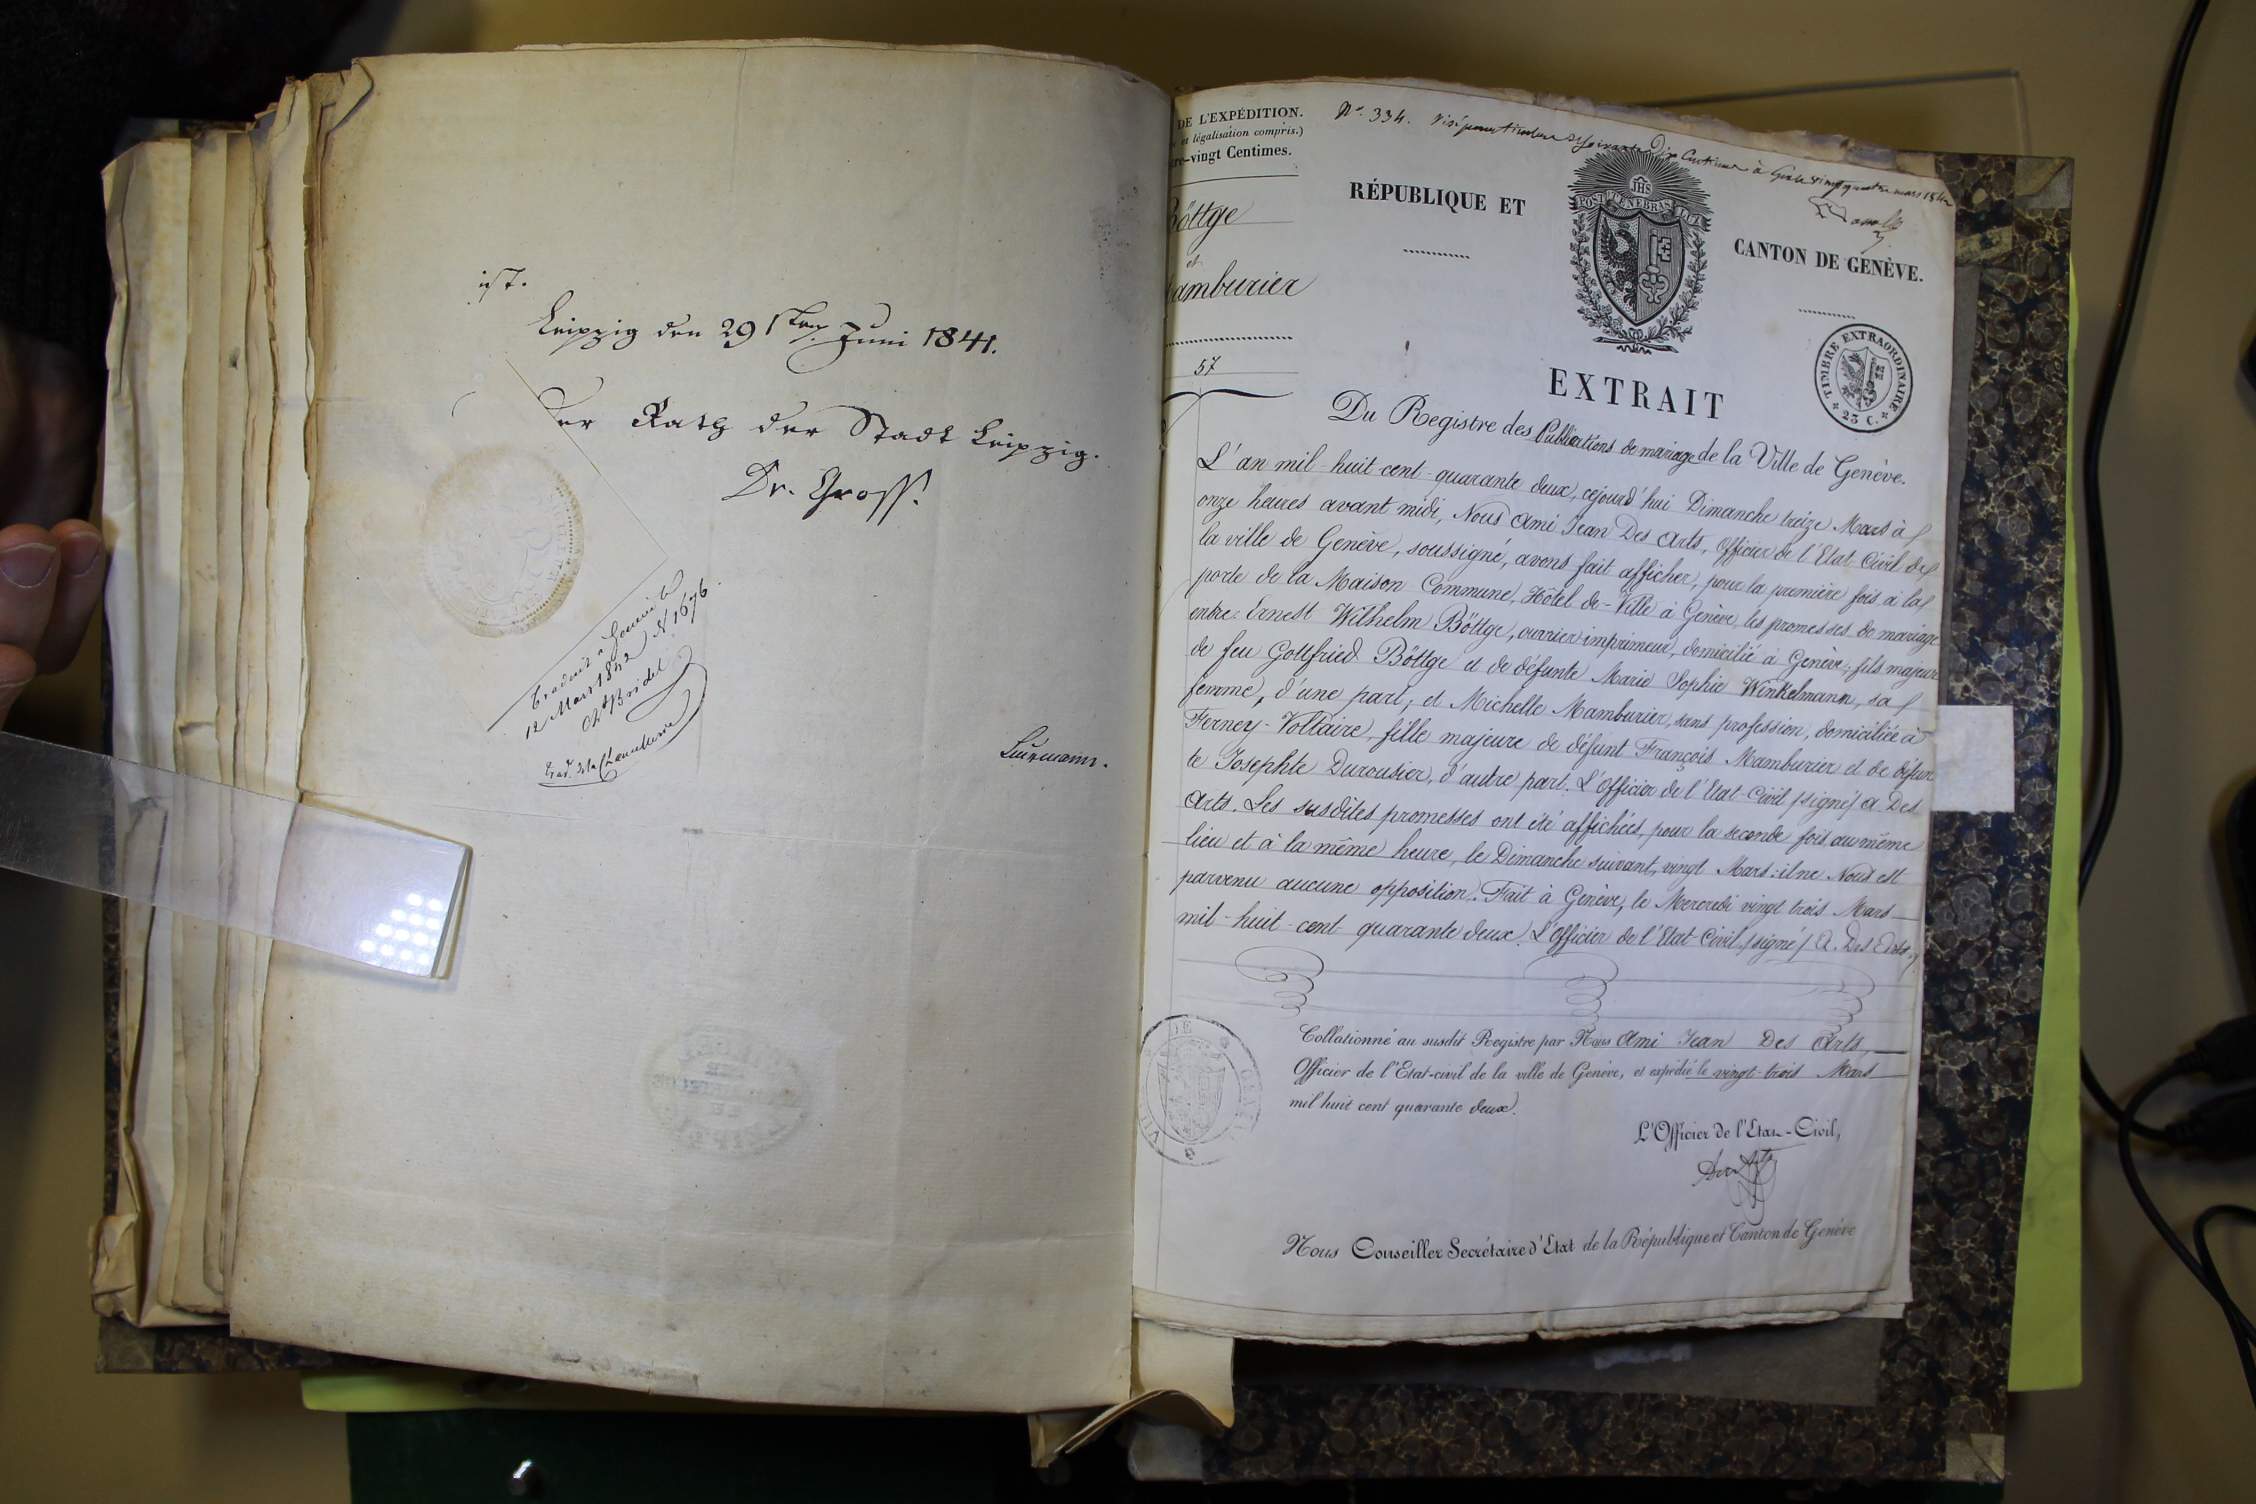 ist.
Leipzig den 29sten Juni 1841.
Der Rath der Stadt Leipzig.
Dr. Gross.
Traduit à Genève le
12 Mars 1842 N 1676.
Ch. Bridel
trad. de la Chancellerie
DE L'EXPÉDITION.
et légalisation compris.)
re-vingt Centimes.
Böttge
et
amburier
57
No. 334. Visé pour timbre Soixante Dix Centimes à Genève vingt quatre mars 1842
RÉPUBLIQUE ET
JHS
POST TENEBRAS LUX
CANTON DE GENÈVE.
TIMBRE EXTRAORDINAIRE
25 C.
EXTRAIT
Du Registre des Publications de mariage de la Ville de Genève.
L'an mil-huit-cent-quarante deux, cejourd'hui Dimanche treize Mars à
onze heures avant midi, Nous Ami Jean Des Arts, Officier de l'Etat Civil de
la ville de Genève, soussigné, avons fait afficher, pour la première fois à la
porte de la Maison Commune, Hôtel-de-Ville à Genève, les promesses de mariage
entre: Ernest Wilhelm Böttge, ouvrier imprimeur, domicilié à Genève, fils majeur
de feu Gottfried Böttge et de défunte Marie Sophie Winkelmann, sa
femme, d'une part; et Michelle Mamburier, sans profession, domiciliée à
Ferney-Voltaire, fille majeure de défunt François Mamburier et de défun
te Josephte Durousier, d'autre part. L'Officier de l'Etat-Civil /signé/ A. Des
Arts. Les susdites promesses ont été affichées, pour la seconde fois, au même
lieu et à la même heure, le Dimanche suivant, vingt Mars: il ne Nous est
parvenu aucune opposition. Fait à Genève, le Mercredi vingt trois Mars
mil-huit-cent quarante deux. L'Officier de l'Etat-Civil, /signé/ A. Des Arts.
Collationné au susdit Registre par Nous Ami Jean Des Arts,
Officier de l'Etat-civil de la ville de Genève, et expédié le vingt-trois Mars
mil huit cent quarante deux.
L'Officier de l'Etat-Civil,
Des Arts
Nous Conseiller Secrétaire d'Etat de la République et Canton de Genève